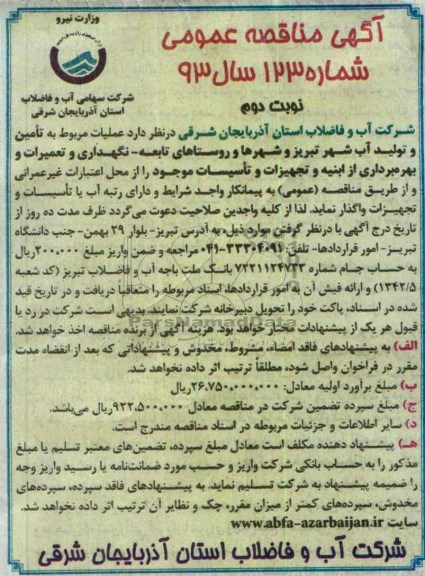 وزارت نیرو
آگهی مناقصه عمومی
شماره ۱۲۳ سال ۹۳
شرکت سهامی آب و فاضلاب
استان آذربایجان شرقی
نوبت دوم
شرکت آب و فاضلاب استان آذربایجان شرقی درنظر دارد عملیات مربوط به تأمین
و تولید آب شهر تبریز و شهرها و روستاهای تابعه- نگهداری و تعمیرات و
بهره‌برداری از ابنیه و تجهیزات و تأسیسات موجود را از محل اعتبارات غیرعمرانی
و از طریق مناقصه (عمومی) به پیمانکار واجد شرایط و دارای رتبه آب یا تأسیسات و
تجهیزات واگذار نماید. لذا از کلیه واجدین صلاحیت دعوت می‌گردد ظرف مدت ده روز از
تاریخ درج آگهی با درنظر گرفتن موارد ذیل، به آدرس تبریز- بلوار ۲۹ بهمن- جنب دانشگاه
تبریز- امور قراردادها- تلفن: ۳۳۳۰۴۰۹۱-۰۴۱ مراجعه و ضمن واریز مبلغ ۲۰۰.۰۰۰ریال
به حساب جام شماره ۷۲۲۱۱۲۴۷۳۳ بانک ملت باجه آب و فاضلاب تبریز (کد شعبه
۱۳۴۲/۵) و ارائه فیش آن به امور قراردادها، اسناد مربوطه را متعاقباً دریافت و در تاریخ قید
شده در اسناد، پاکت خود را تحویل دبیرخانه شرکت نمایند. بدیهی است شرکت در رد یا
قبول هر یک از پیشنهادات مختار خواهد بود و هزینه آگهی از برنده مناقصه اخذ خواهد شد.
الف) به پیشنهادهای فاقد امضاء، مشروط، مخدوش و پیشنهاداتی که بعد از انقضاء مدت
مقرر در فراخوان واصل شود، مطلقاً ترتیب اثر داده نخواهد شد.
ب) مبلغ برآورد اولیه معادل: ۲۶.۷۵۰.۰۰۰.۰۰۰ریال
ج) مبلغ سپرده تضمین شرکت در مناقصه معادل ۹۲۲.۵۰۰.۰۰۰ریال می‌باشد.
د) سایر اطلاعات و جزئیات مربوطه در اسناد مناقصه مندرج است.
هـ) پیشنهاد دهنده مکلف است معادل مبلغ سپرده، تضمین‌های معتبر تسلیم یا مبلغ
مذکور را به حساب بانکی شرکت واریز و حسب مورد ضمانت‌نامه یا رسید واریز وجه
را ضمیمه پیشنهاد به شرکت تسلیم نماید. به پیشنهادهای فاقد سپرده، سپرده‌های
مخدوش، سپرده‌های کمتر از میزان مقرر، چک و نظایر آن ترتیب اثر داده نخواهد شد.
سایت www.abfa-azarbaijan.ir
شرکت آب و فاضلاب استان آذربایجان شرقی